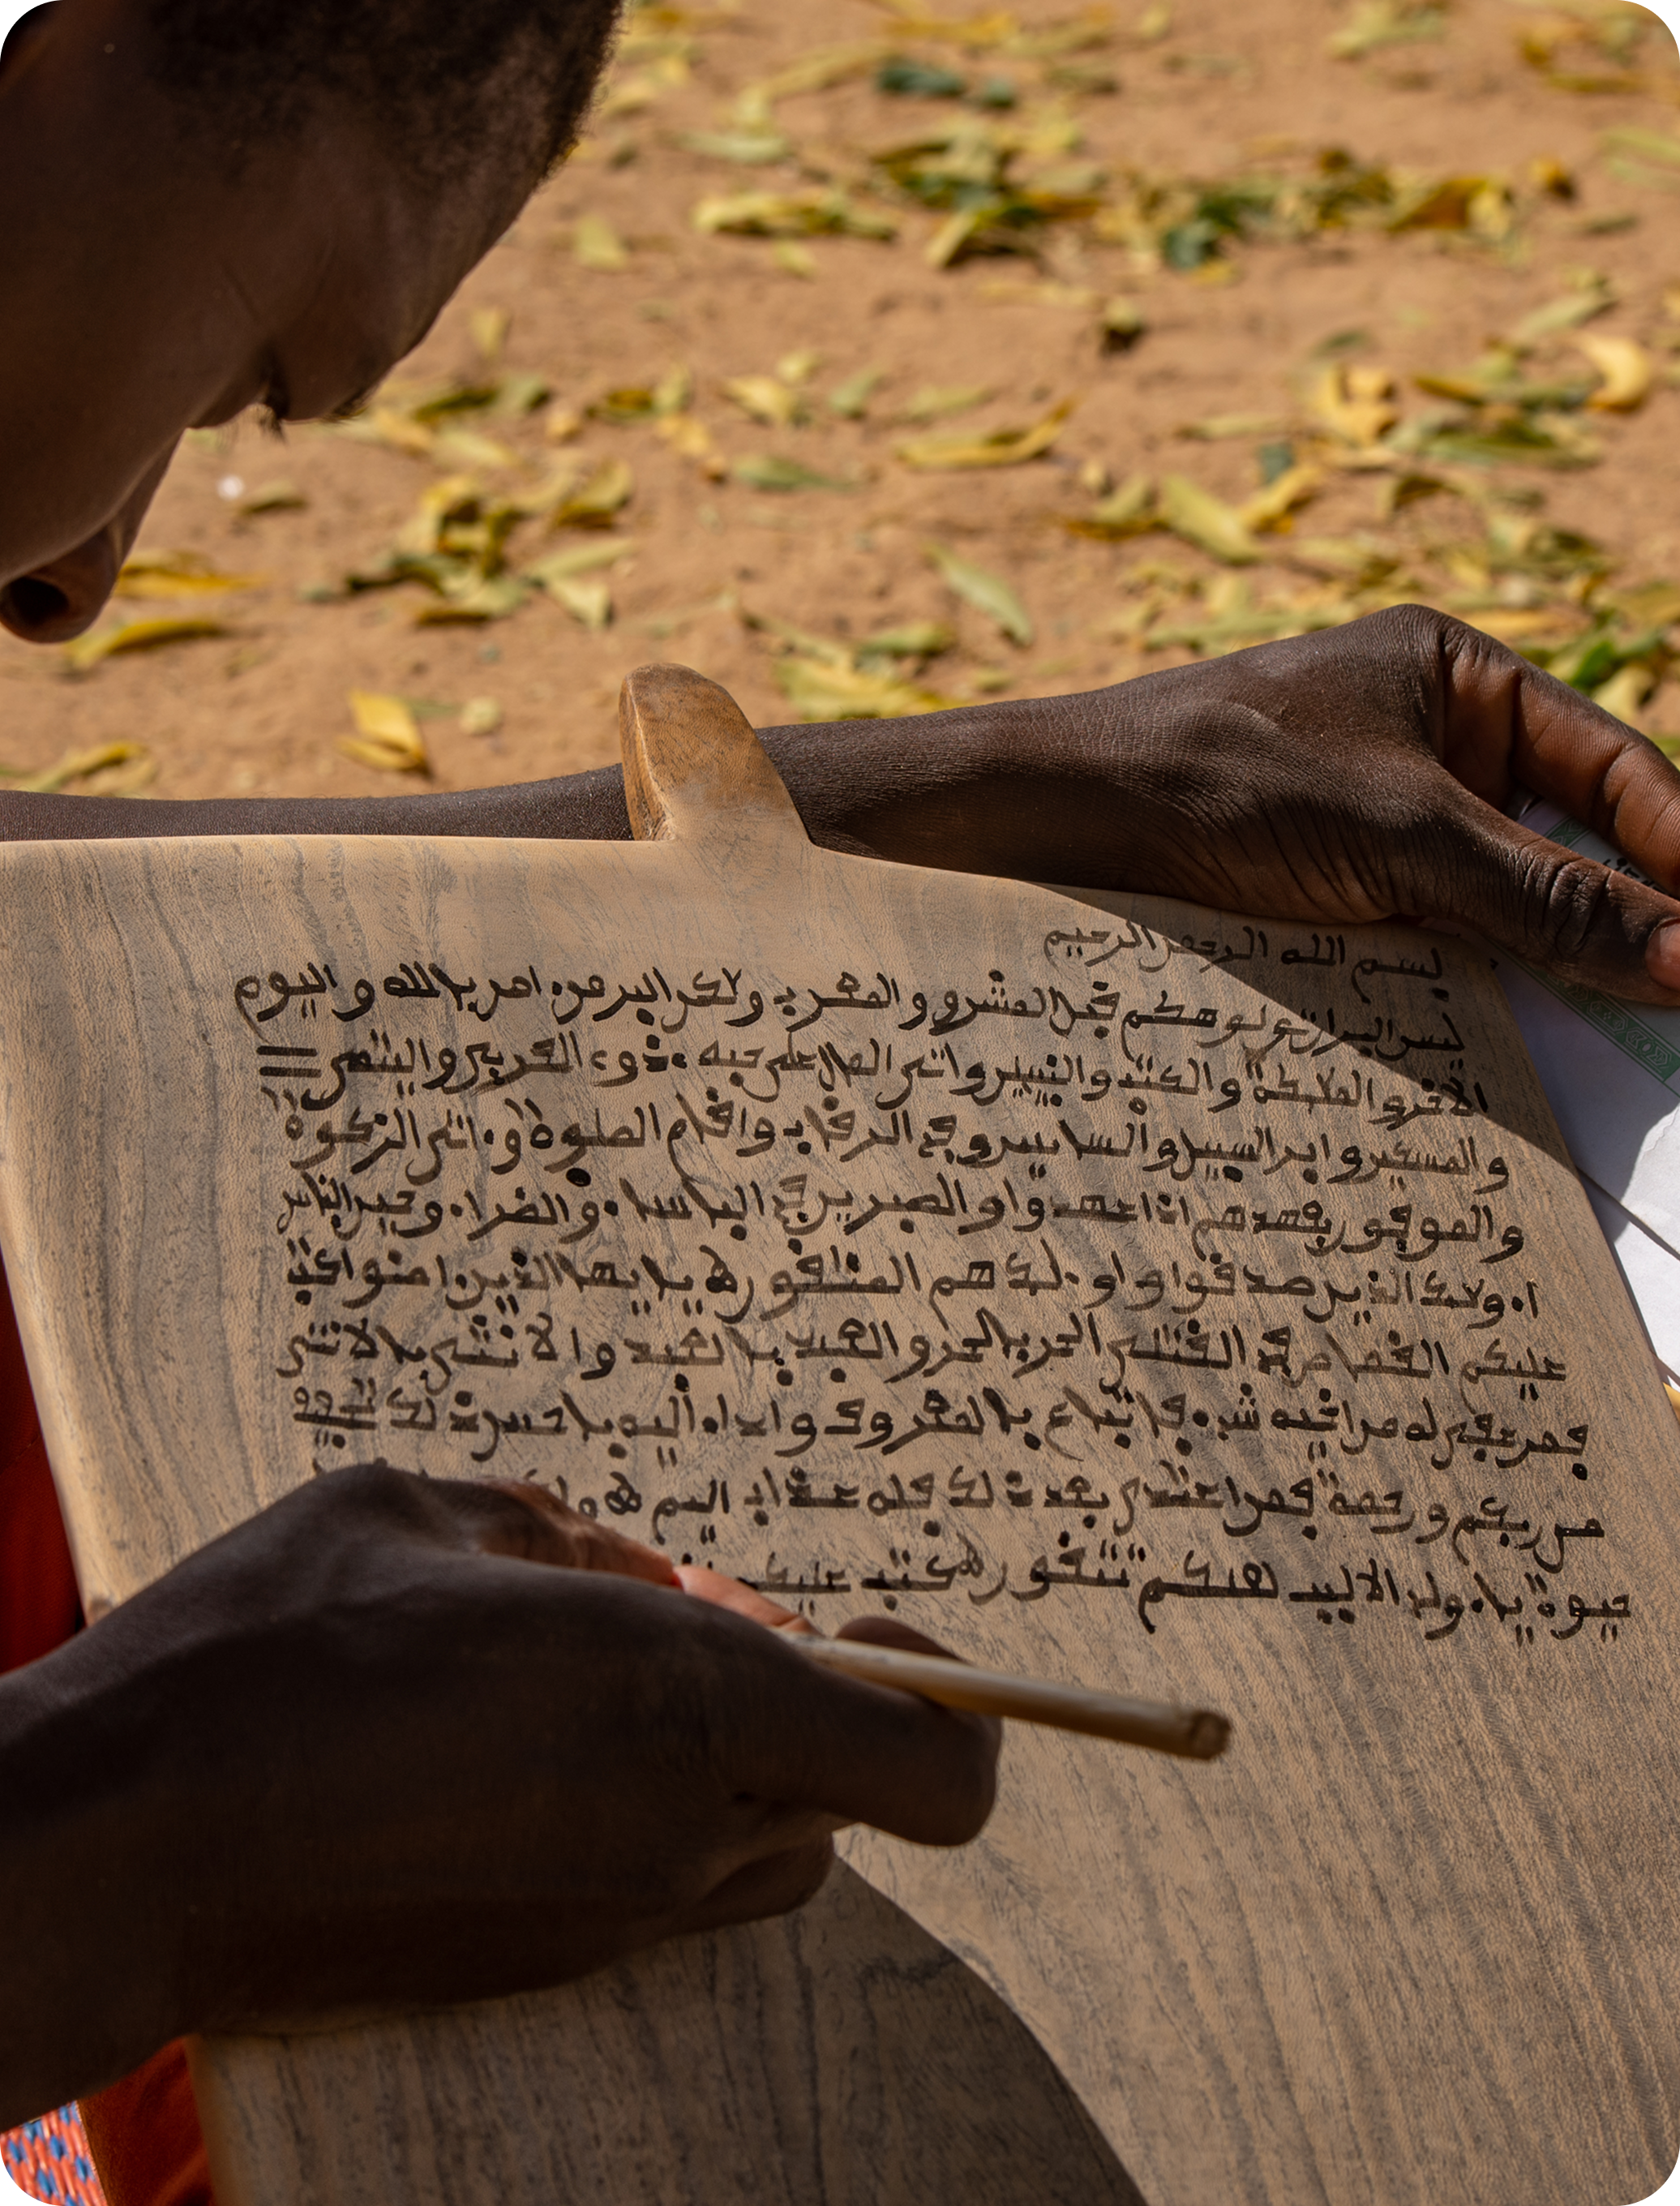 بسم الله الرحمن الرحيم
ليس البر ان تولوا وجوهكم قبل المشرق والمغرب ولكن البر من امن بالله واليوم
الاخر والملئكة والكتب والنبيين واتى المال على حبه ذوى القربى واليتمى
والمسكين وابن السبيل والسايلين وفى الرقاب واقام الصلوة واتى الزكوة
والموفون بعهدهم اذا عهدوا والصبرين فى الباساء والضراء وحين الباس
اولئك الذين صدقوا واولئك هم المتقون يايها الذين امنوا كتب
عليكم القصاص فى القتلى الحر بالحر والعبد بالعبد والانثى بالانثى
فمن عفى له من اخيه شىء فاتباع بالمعروف واداء اليه باحسن ذلك تخفيف
من ربكم ورحمة فمن اعتدى بعد ذلك فله عذاب اليم
حيوة ياولى الالبب لعلكم تتقون كتب عليكم